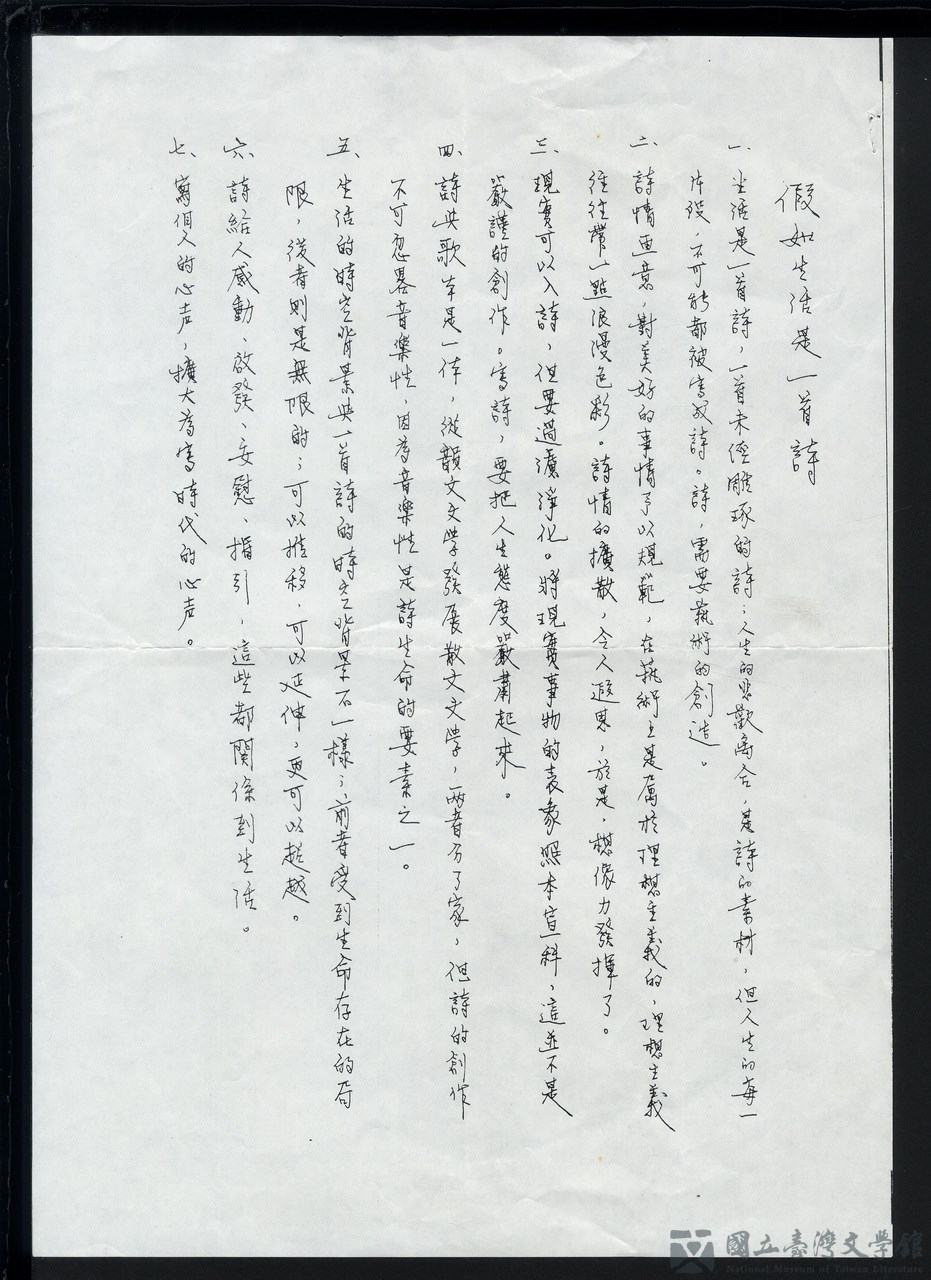 假如生活是一首詩
一、生活是一首詩，一首未經雕琢的詩；人生的悲歡離合，是詩的素材，但人生的每一
片段，不可能都被寫成詩。詩，需要藝術的創造。
二、詩情画意，對美好的事情予以規範，在藝術上是屬於理想主義的，理想主義
往往帶一點浪漫色彩。詩情的擴散，令人遐思，於是，想像力發揮了。
三、現實可以入詩，但要過濾淨化。將現實事物的表象照本宣科，這並不是
嚴謹的創作。寫詩，要把人生態度嚴肅起來。
四、詩與歌本是一体，從韻文文學發展散文文學，兩者分了家，但詩的創作
不可忽畧音樂性，因為音樂性是詩生命的要素之一。
五、生活的時空背景與一首詩的時空背景不一樣；前者受到生命存在的局
限，後者則是無限的；可以推移，可以延伸，更可以超越。
六、詩給人感動、啟發、安慰、指引，這些都關係到生活。
七、寫個人的心声，擴大為寫時代的心声。
國立臺灣文學館
National Museum of Taiwan Literature